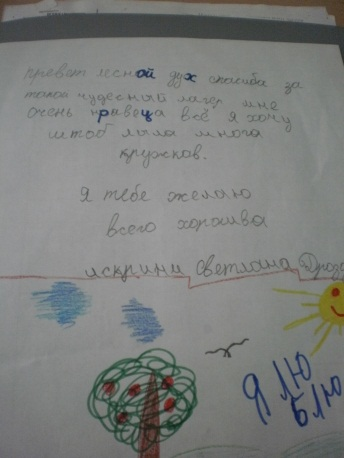 превет лесной дух спасиба за
такой чудесный лагер мне
очень нравеца всё я хочу
штоб лыла многа
кружков.
я тебе желаю
всего хорошва
искрини Светлана Дрозд
Я ЛЮ
БЛЮ